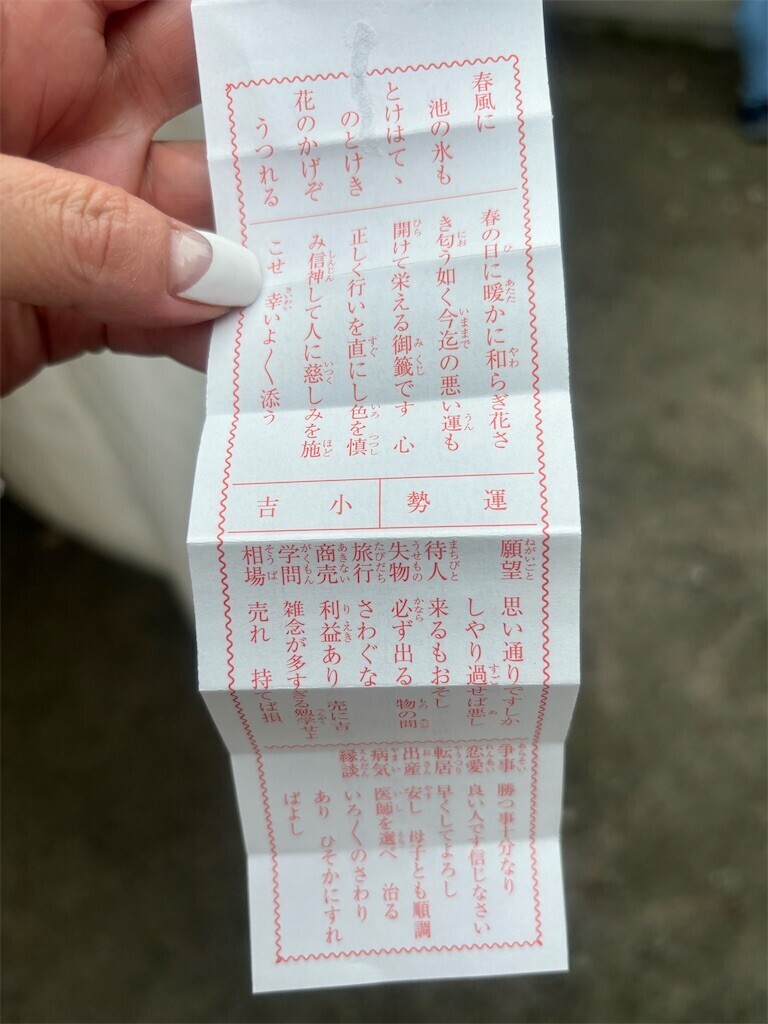 春風に
池の氷も
とけはてゝ
のとけき
花のかげぞ
うつれる
春の日に暖かに和らぎ花さ
き匂う如く今迄の悪い運も
開けて栄える御籤です　心
正しく行いを直にし色を慎
み信神して人に慈しみを施
こせ　幸いよ〳〵添う
運勢　小吉
願望　思い通りですしか
しやり過せば悪し
待人　来るもおそし
失物　必ず出る　物の間
旅行　さわぐな
商売　利益あり　売に吉
学問　雑念が多すぎる勉学せよ
相場　売れ　持てば損
争事　勝つ事十分なり
恋愛　良い人です信じなさい
転居　早くしてよろし
出産　安し　母子とも順調
病気　医師を選べ　治る
縁談　いろ〳〵のさわり
あり　ひそかにすれ
ばよし